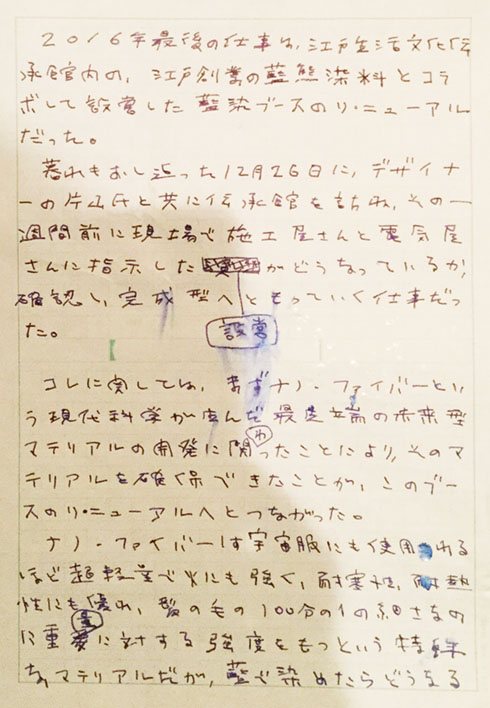 ２０１６年最後の仕事は、江戸生活文化伝
承館内の、江戸創業の藍熊染料とコラ
ボして設営した藍染ブースのリ・ニューアル
だった。
暮れもおし迫った１２月２６日に、デザイナ
ーの片山氏と共に伝承館を訪ね、その一
週間前に現場で施工屋さんと電気屋
さんに指示した
がどうなっているか、
設営
確認し、完成型へともっていく仕事だっ
た。
コレに関しては、まずナノ・ファイバーとい
う現代科学が産んだ最先端の未来型
マテリアルの開発に関わったことにより、そのマ
テリアルを確保できたことが、このブー
スのリ・ニューアルへとつながった。
ナノ・ファイバーは宇宙服にも使用される
ほど超軽量で火にも強く、耐寒性、耐熱
性にも優れ、髪の毛の１００分の１の細さなの
に重量に対する強度をもつという特殊
な、マテリアルだが、藍で染めたらどうなる